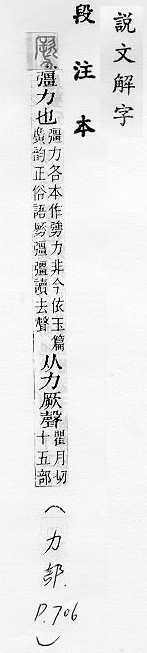 説文解字
段注本
彊力也
彊力各本作勥力非今依玉篇
廣韵正俗語彊彊讀去聲
从力厥聲
瞿月切
十五部
（力部. P.706）